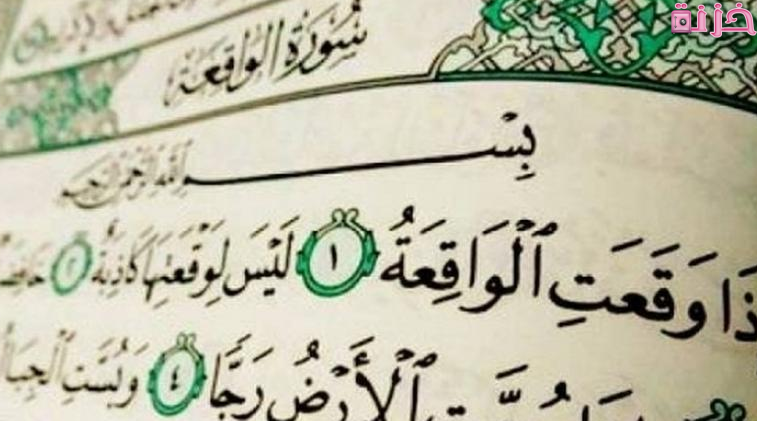 خزنة
سُورَةُ الوَاقِعَة
بِسْمِ اللَّهِ الرَّحْمَٰنِ الرَّحِيمِ
ذَا وَقَعَتِ ٱلْوَاقِعَةُ ١ لَيْسَ لِوَقْعَتِهَا كَاذِبَةٌ ٢
ٱلْأَرْضُ رَجًّا ٤ وَبُسَّتِ ٱلْجِبَا